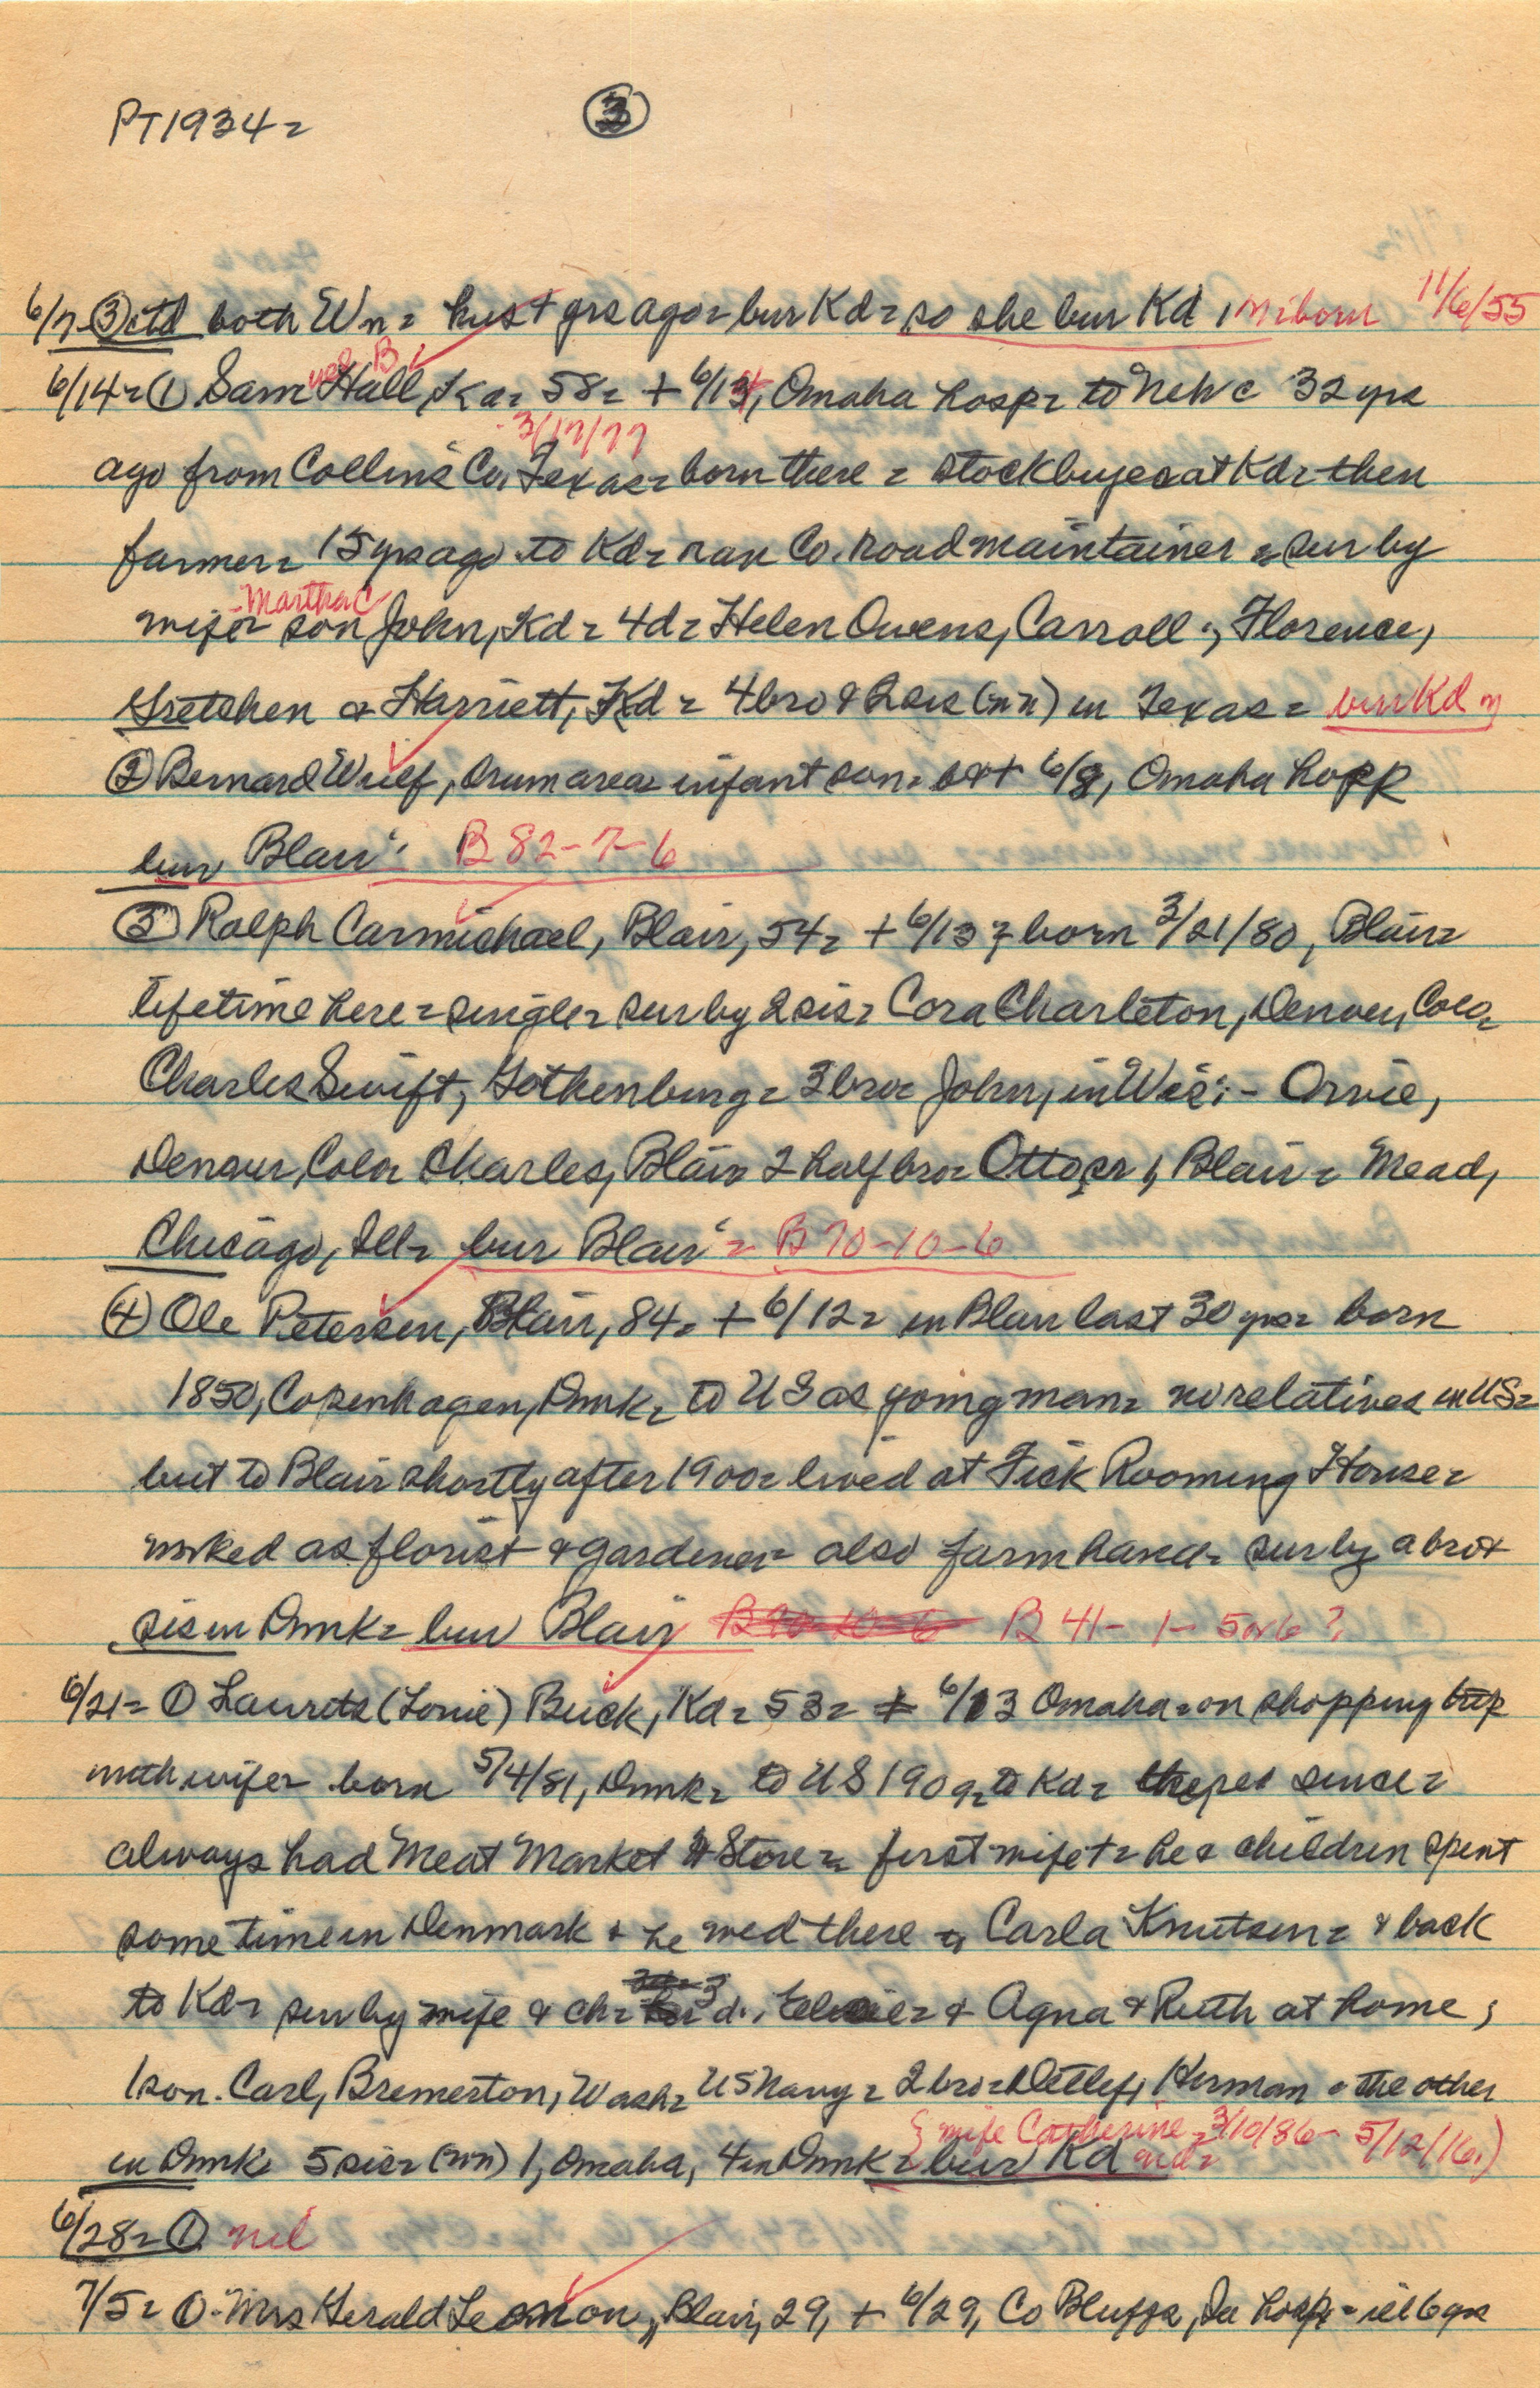 PT1934 = ③
6/7 ③ ctd both Wn = hus + yrs ago = bur Kd = so she bur Kd, Mrs born 11/6/55
6/14 = ① Samuel B. Hall, Kd = 58 = + 6/13, Omaha hosp = to Neb c 32 yrs
3/17/77
ago from Collins Co, Texas = born there = stockbuyer at Kd = then
farmer = 15 yrs ago to Kd = ran Co. road maintainer = sur by
Martha C
wife = son John, Kd = 4d = Helen Owens, Carroll; Florence,
Gretchen & Harriett, Kd = 4 bro & 2 sis (nn) in Texas = bur Kd
② Bernard Wulf, Orum area = infant son = b & + 6/8, Omaha hosp
bur Blair: B 82-7-6
③ Ralph Carmichael, Blair, 54 = + 6/13; born 3/21/80, Blair =
lifetime here = single = sur by 2 sis = Cora Charleton, Denver, Colo =
Charles Swift, Gothenburg = 3 bro = John, in Wis: - Orvie,
Denver, Colo = Charles, Blair = 2 half bro = Otto, Blair = Mead,
Chicago, Ill = bur Blair = B 70-10-6
④ Ole Petersen, Blair, 84 = + 6/12 = in Blair last 30 yrs = born
1850, Copenhagen, Dnmk = to US as young man = no relatives in US =
but to Blair shortly after 1900 = lived at Fick Rooming House =
worked as florist & gardener = also farm hand = sur by a bro &
sis in Dnmk = bur Blair B 70-10-6 B 41-1-5 or 6?
6/21 = ① Laurits (Louie) Buck, Kd = 53 = + 6/13 Omaha = on shopping trip
with wife = born 5/4/81, Dnmk = to US 1909 = to Kd = since =
always had Meat Market & Store = first wife + = he & children spent
some time in Denmark & he wed there = Carla Knutsen = & back
to Kd = sur by wife & ch = 3 d. & Agna & Ruth at home;
1 son. Carl, Bremerton, Wash = US Navy = 2 bro = Detlef, Herman & the other
{ wife Catherine = 3/10/86 - 5/12/16.)
in Dnmk 5 sis = (nn) 1, Omaha, 4 in Dnmk = bur Kd
6/28 = ① nil
7/5 = ① Mrs Gerald Lemon, Blair, 29, + 6/29, Co Bluffs, Ia hosp = ill 6 yrs